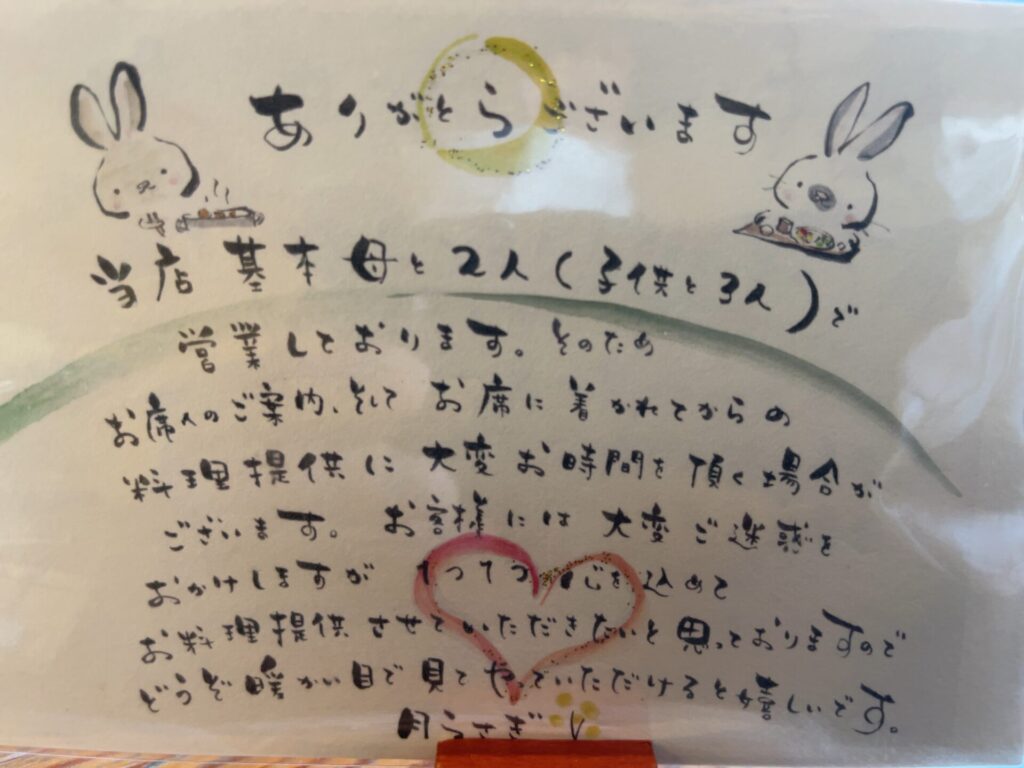 ありがとうございます
当店基本母と2人(子供と3人)で
営業しております。そのため
お席へのご案内、そして お席に着かれてからの
料理提供に大変お時間を頂く場合が
ございます。お客様には大変ご迷惑を
おかけしますが 1つ1つ 心を込めて
お料理提供させていただきたいと思っておりますので
どうぞ暖かい目で見てやっていただけると嬉しいです。
月うさぎ